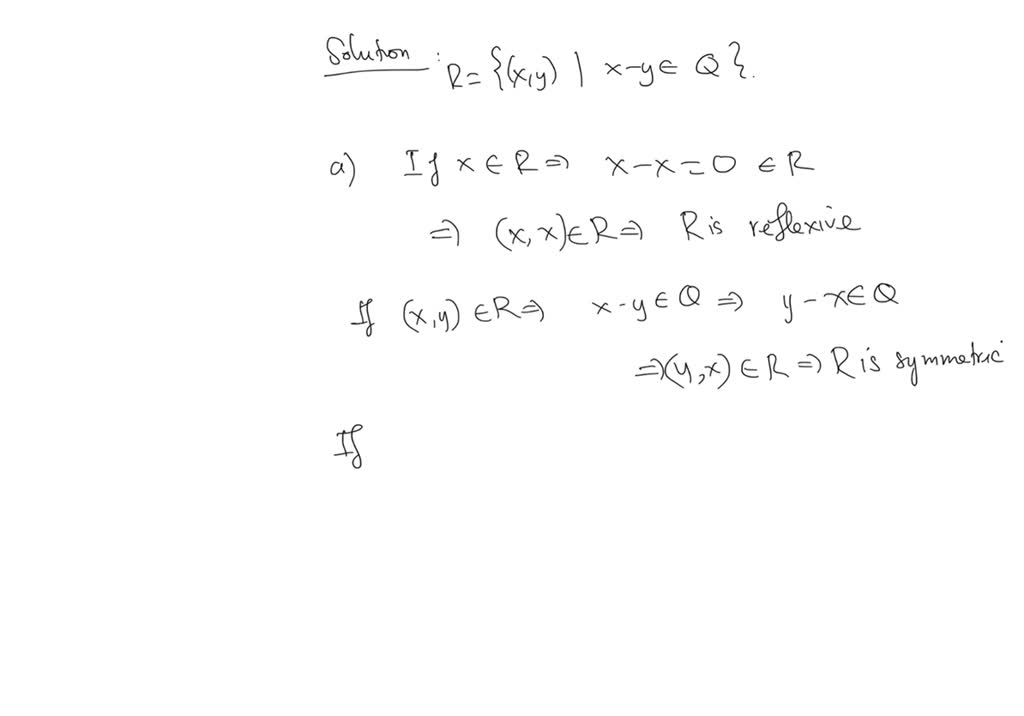 Solution :
R = {(x,y) | x-y ∈ Q}.
a) If x ∈ R ⇒ x-x=0 ∈ R
⇒ (x,x) ∈ R ⇒ R is reflexive
If (x,y) ∈ R ⇒ x-y ∈ Q ⇒ y-x ∈ Q
⇒ (y,x) ∈ R ⇒ R is symmetric
If